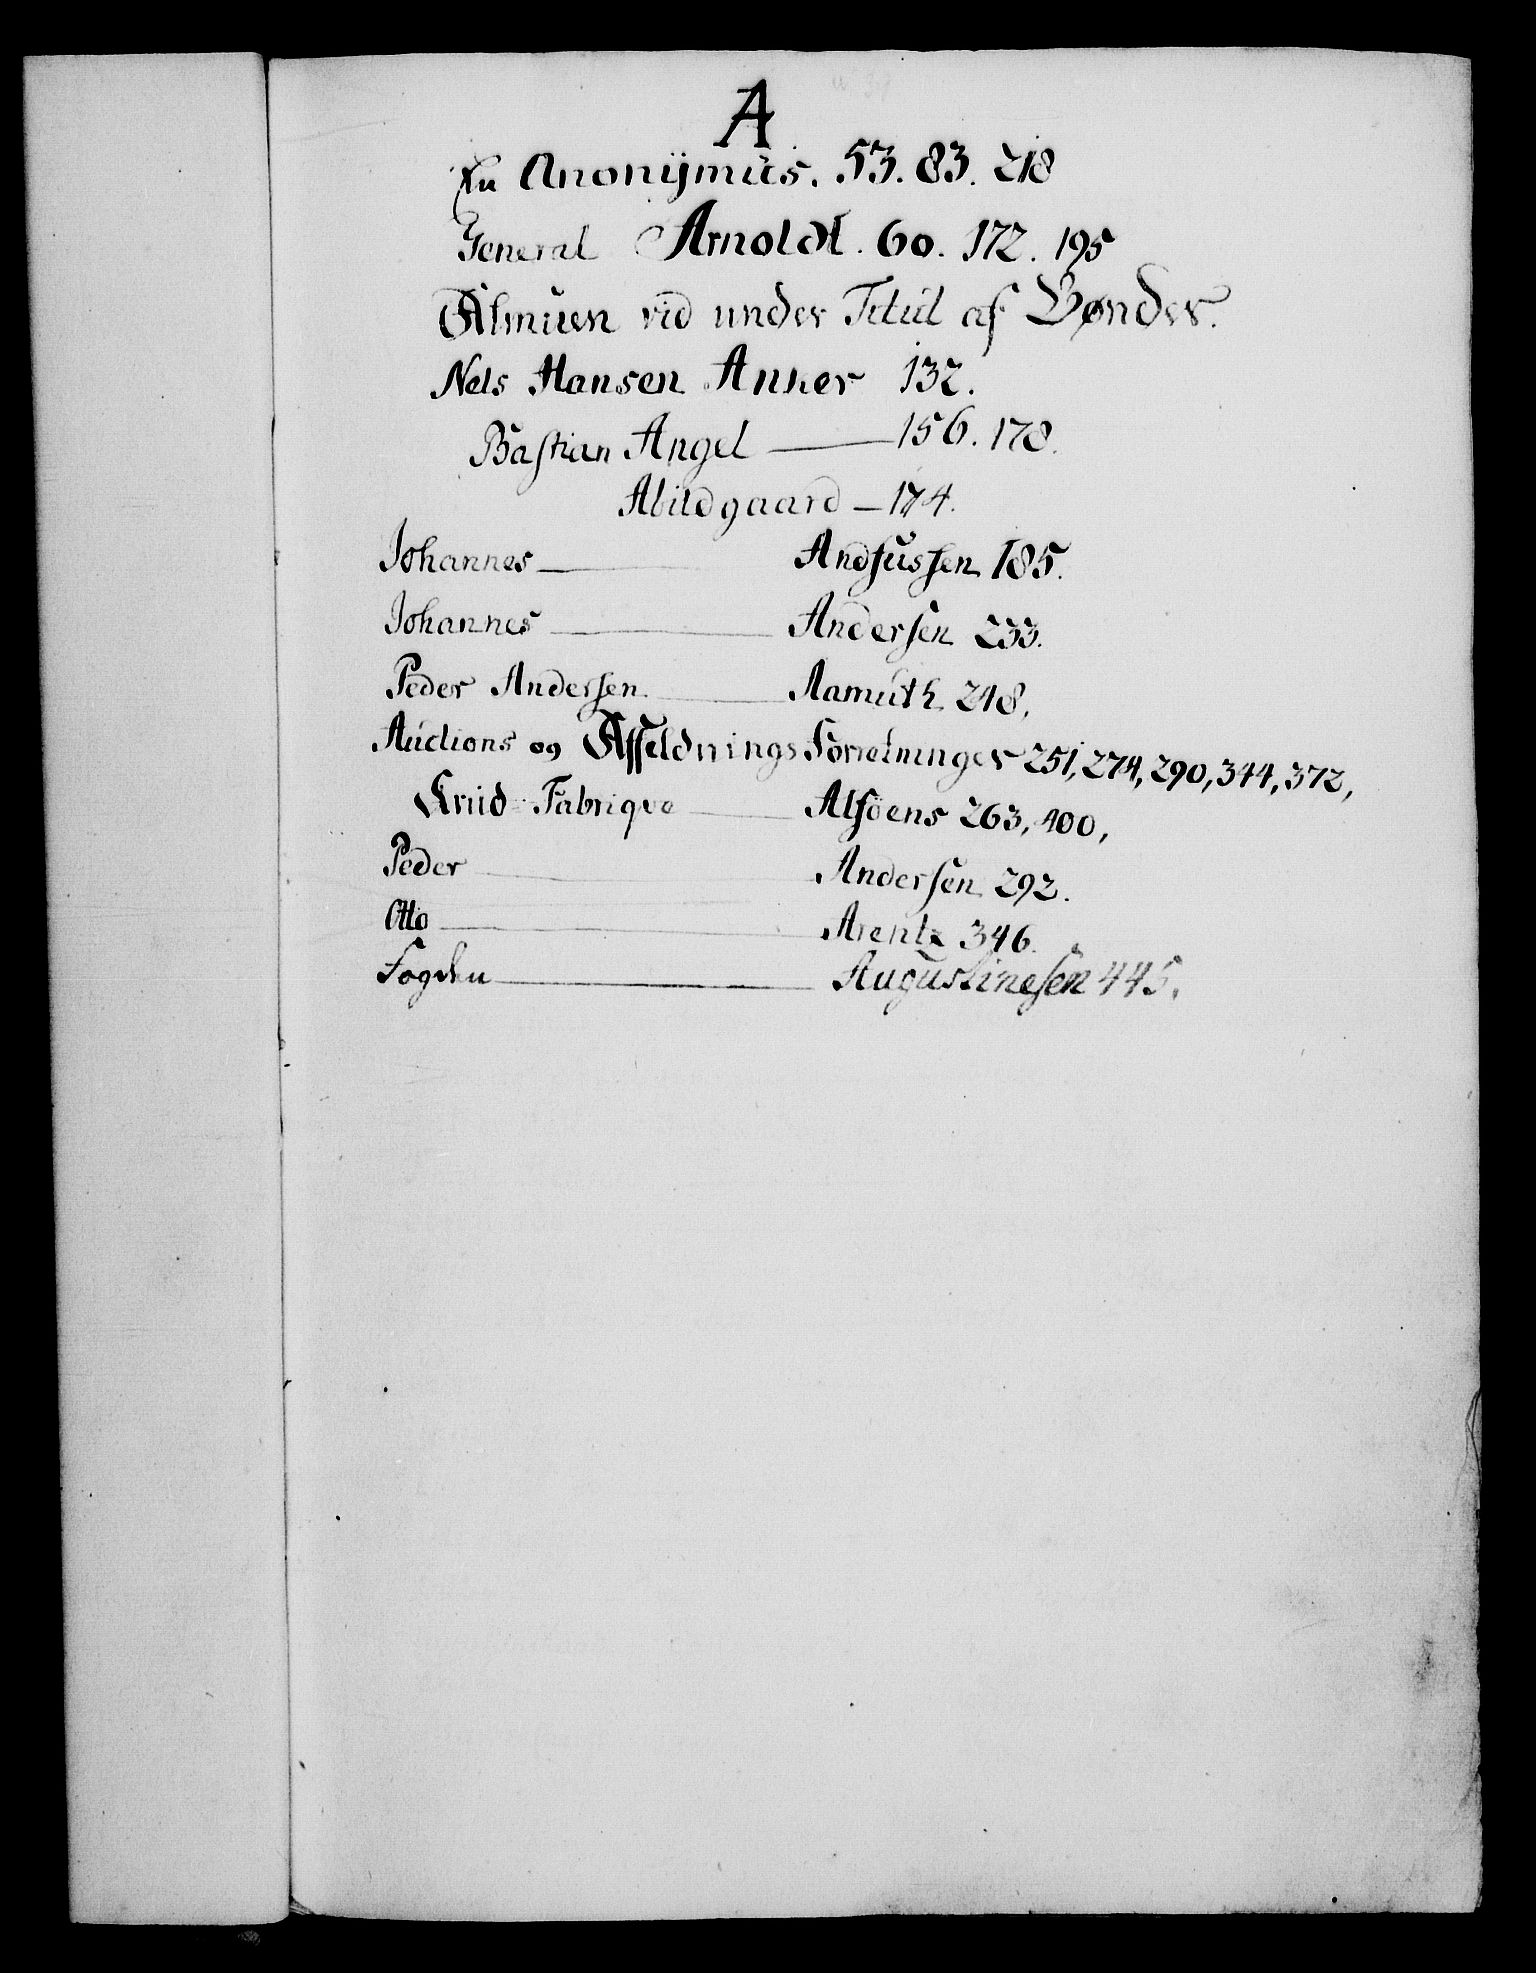 A
En Anonÿmus. 53. 83. 218
General Arnoldt. 60. 172. 195
Almuen vid under Titul af Bønder.
Nels Hansen Anker 132.
Bastian Angel — 156. 178.
Abildgaard — 174.
Johannes — Andfussen 185.
Johannes — Andersen 233.
Peder Andersen — Aamuth 248.
Auctions og Affældnings Forretninger 251, 274, 290, 344, 372,
Krud Fabrique — Alföens 263, 400,
Peder — Andersen 292.
Otto — Arentz 346.
Fogden — Augustinesen 445.